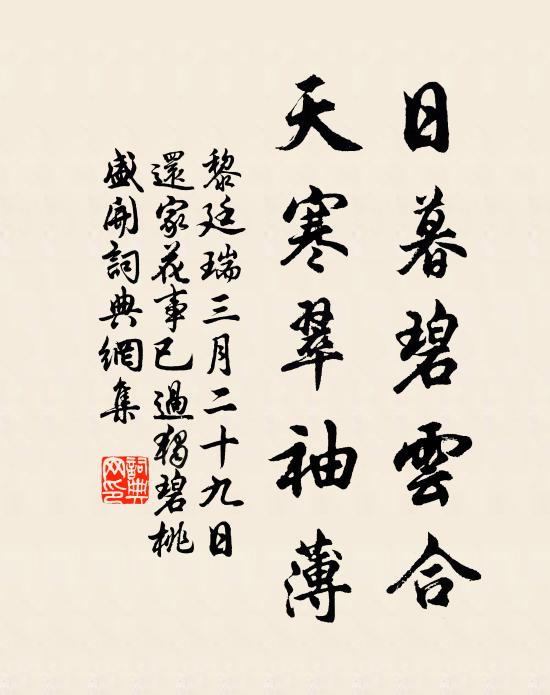 日暮碧雲合
天寒翠袖薄
黎廷瑞三月二十九日
還家花事已過獨碧桃
盛開詞典網集
詞典
网印